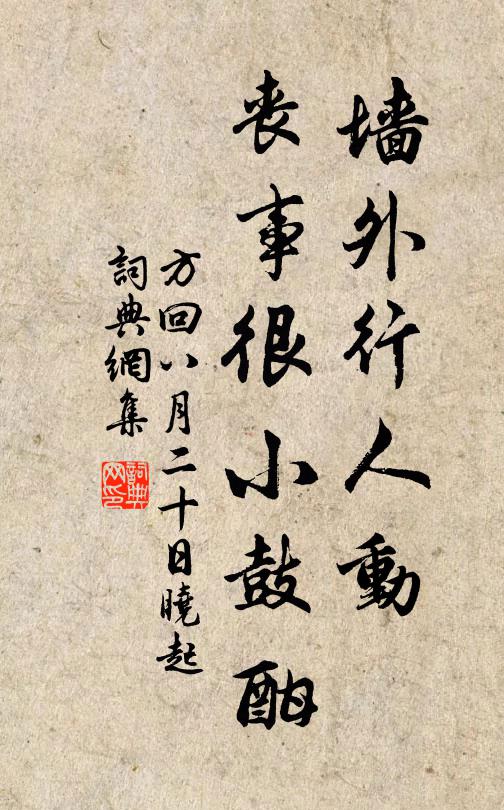 墙外行人動
丧事很小鼓酣
方回八月二十日曉起
詞典網集
詞典网印